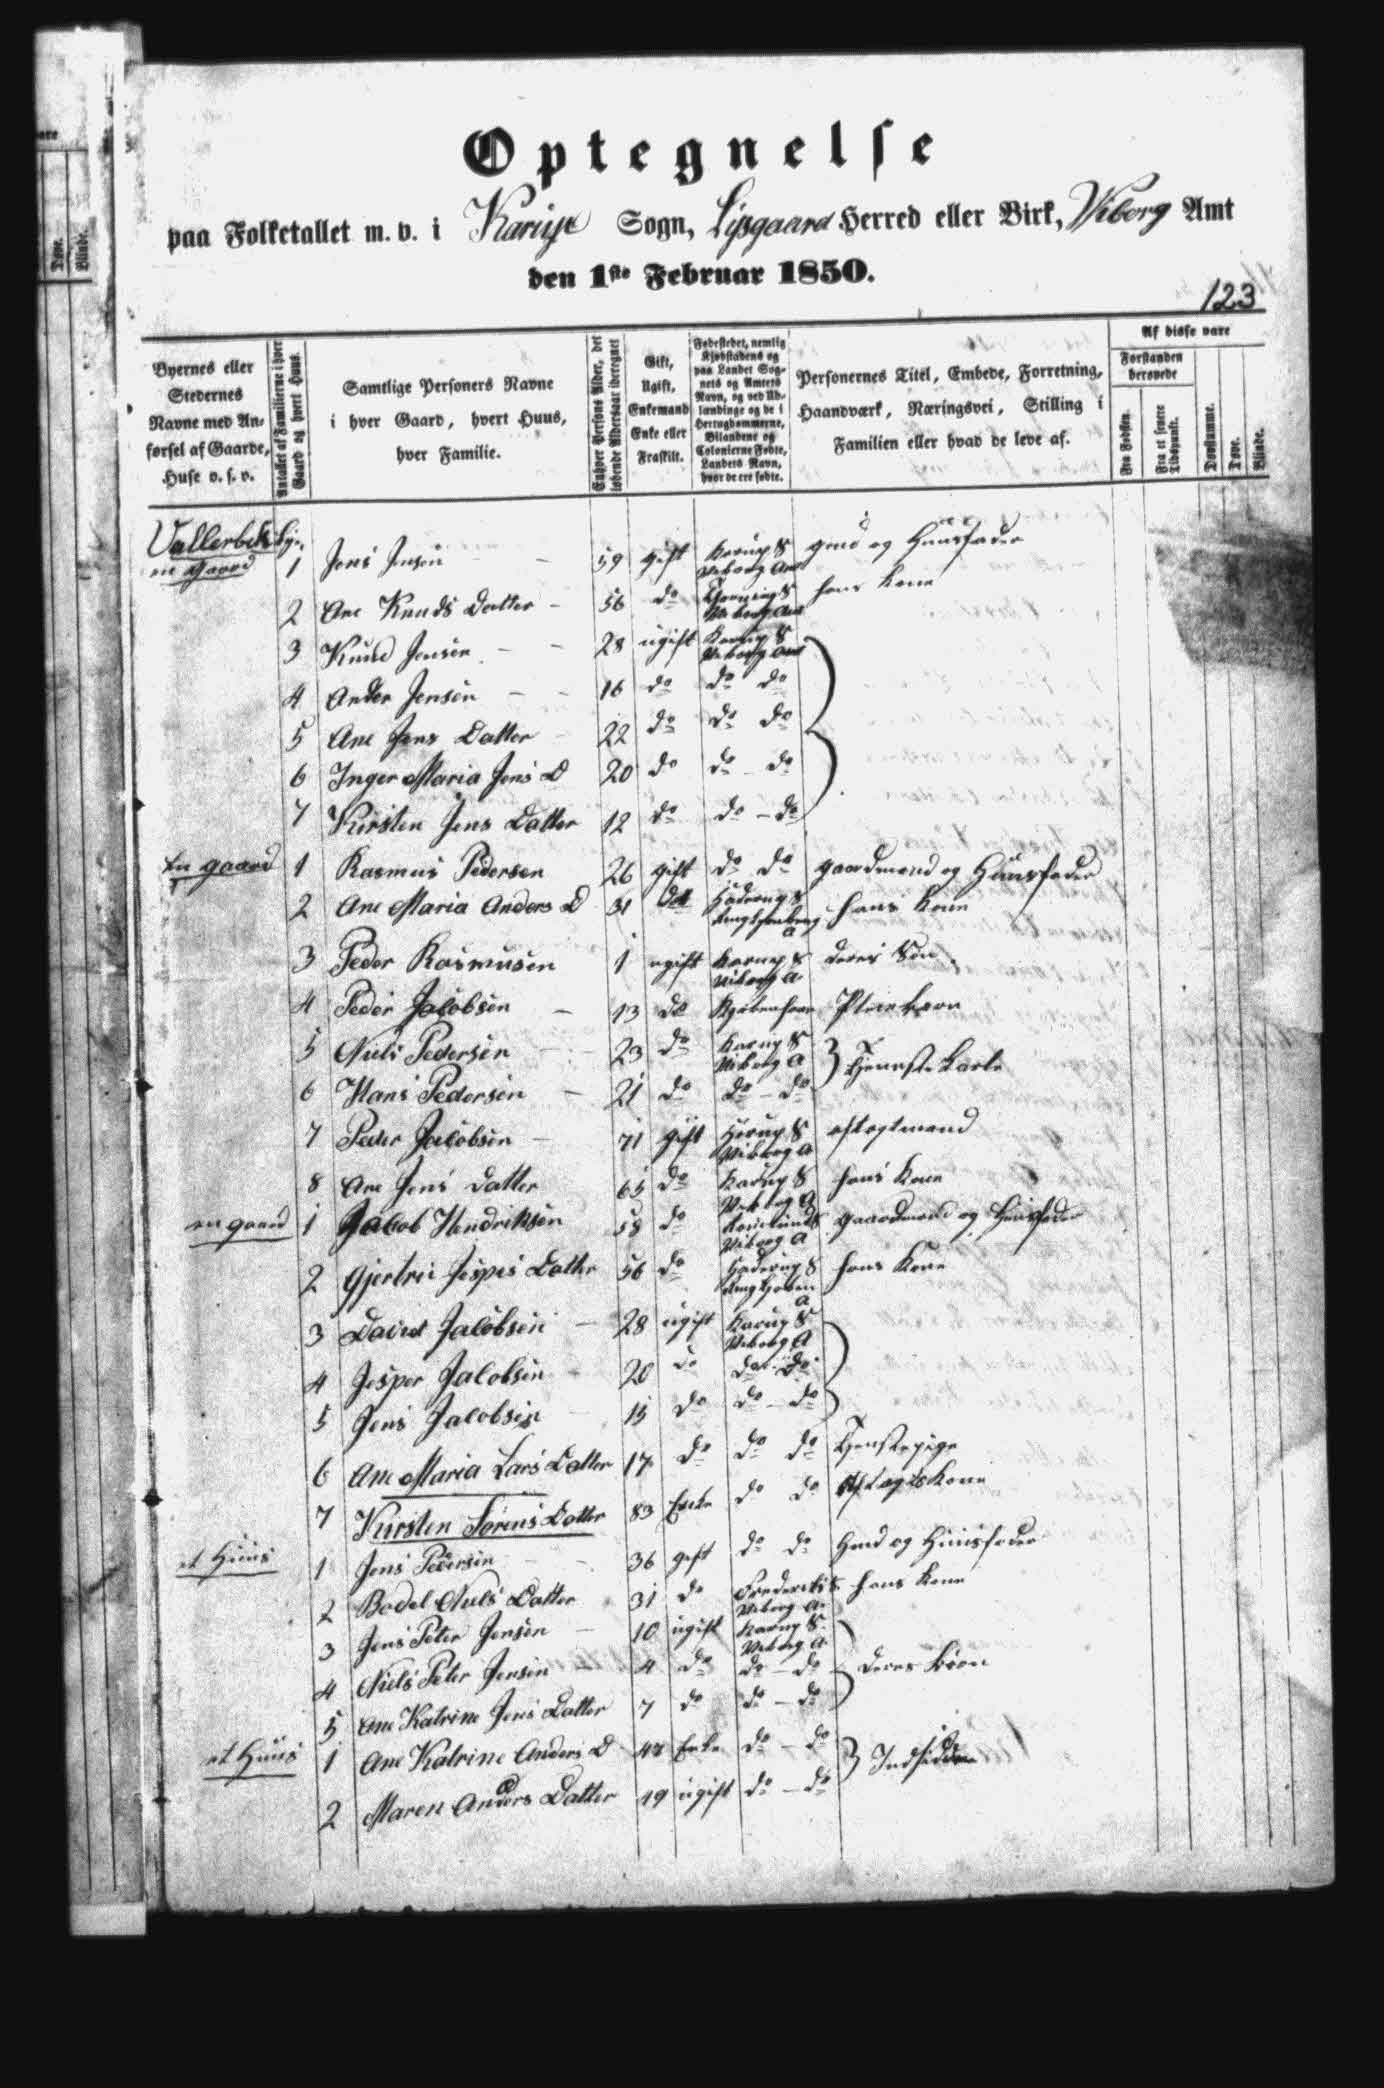 Optegnelse
paa Folketallet m. v. i Karup Sogn, Lysgaard Herred eller Birk, Viborg Amt
den 1ste Februar 1850.
123
Byernes eller Stedernes Navne med Anførsel af Gaarde, Huse o. s. v.
Antallet af Familierne i hver Gaard og hvert Huus.
Samtlige Personers Navne i hver Gaard, hvert Huus, hver Familie.
Enhver Persons Alder, det løbende Aldersaar iberegnet
Gift, Ugift, Enkemand Enke eller Fraskilt.
Fødestedet, nemlig Kjøbstadens og paa Landet Sognets og Amtets Navn, og ved Udlændinge og de i Hertugdømmerne, Bilandene og Colonierne Fødte, Landets Navn, hvor de ere fødte.
Personernes Titel, Embede, Forretning, Haandværk, Næringsvei, Stilling i Familien eller hvad de leve af.
Af disse vare
Forstanden berøvede
Fra Fødslen.
Fra et senere Tidspunkt.
Døvstumme.
Døve.
Blinde.
Vallerbek Bye.
en Gaard 1 Jens Jensen 59 gift Karup S Viborg Amt gmd og Huusfader
2 Ane Knuds Datter 56 do S Viborg Amt hans Kone
3 Knud Jensen 28 ugift Karup S Viborg Amt
4 Ander Jensen 16 do do do
5 Ane Jens Datter 22 do do do
6 Inger Maria Jens D 20 do do do
7 Kirsten Jens Datter 12 do do do
En gaard 1 Rasmus Pedersen 26 gift do do gaardmand og Huusfader
2 Ane Maria Anders D 31 do S hans Kone
3 Peder Rasmusen 1 ugift Karup S Viborg A deres Søn
4 Peder Jacobsen 13 do Kjøbenhavn Pleiebarn
5 Niels Pedersen 23 do Karup S Viborg A
6 Hans Pedersen 21 do do do Tjenestekarle
7 Peder Jacobsen 71 gift S Viborg A aftægtmand
8 Ane Jens Datter 65 do Karup S Viborg A hans Kone
en gaard 1 Jacob Hendriksen 58 do Viborg A gaardmand og Huusfader
2 Gjertrui Jespes Datter 56 do S hans Kone
3 David Jacobsen 28 ugift Karup S Viborg A
4 Jesper Jacobsen 20 do do do
5 Jens Jacobsen 15 do do do
6 Ane Maria Lars Datter 17 do do do Tjenstepige
7 Kirsten Sørens Datter 83 Enke do do Aftægtskone
et Huus 1 Jens Pedersen 36 gift do do Hmd og Huusfader
2 Bodel Niels Datter 31 do Frederiks S. Viborg A. hans Kone
3 Jens Peter Jensen 10 ugift Karup S. Viborg A
4 Niels Peter Jensen 4 do do do deres Børn
5 Ane Katrine Jens Datter 7 do do do
et Huus 1 Ane Katrine Anders D Enke do do Indsiddere
2 Maren Anders Datter 19 ugift do do